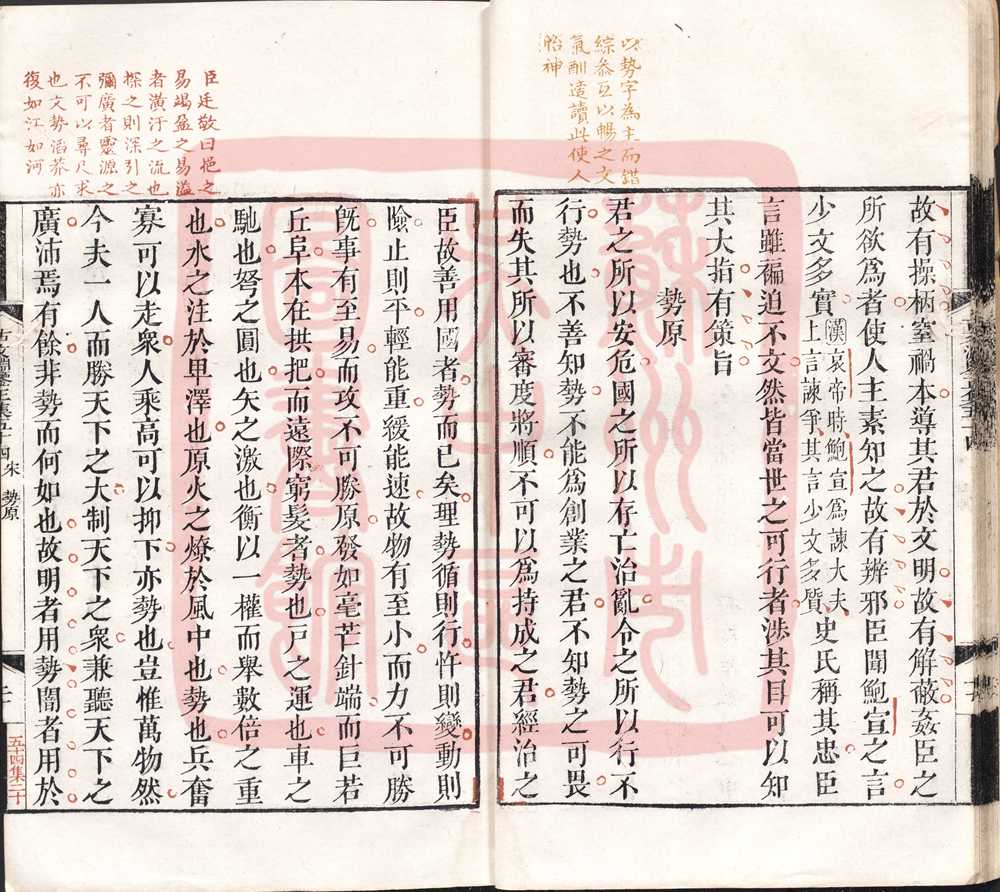 以勢字為主而錯
綜叅互以暢之文
氣酣遒讀此使人
怡神
故有操柄窒禍本導其君於文明故有解蔽姦臣之
所欲爲者使人主素知之故有辨邪臣聞鮑宣之言
少文多實漢哀帝時鮑宣爲諫大夫
上言諫爭其言少文多質史氏稱其忠臣
言雖褊迫不文然皆當世之可行者涉其目可以知
其大指有策旨
勢原
君之所以安危國之所以存亡治亂令之所以行不
行勢也不善知勢不能爲創業之君不知勢之可畏
而失其所以審度將順不可以爲持成之君經治之
臣廷敬曰挹之
易竭盈之易溢
者潢汙之流也
探之則深引之
彌廣者靈源之
不可以尋尺求
也文勢滔莽亦
復如江如河
臣故善用國者勢而已矣理勢循則行忤則變動則
險止則平輕能重緩能速故物有至小而力不可勝
旣事有至易而攻不可勝原發如毫芒針端而巨若
丘阜本在拱把而遠際窮髮者勢也戸之運也車之
馳也弩之圓也矢之激也衡以一權而舉數倍之重
也水之注於卑澤也原火之燎於風中也勢也兵奮
寡可以走衆人乘高可以抑下亦勢也豈惟萬物然
今夫一人而勝天下之大制天下之衆兼聽天下之
廣沛焉有餘非勢而何如也故明者用勢闇者用於
宋 勢原
二十
五十四集二十
蘇州市
圖書館